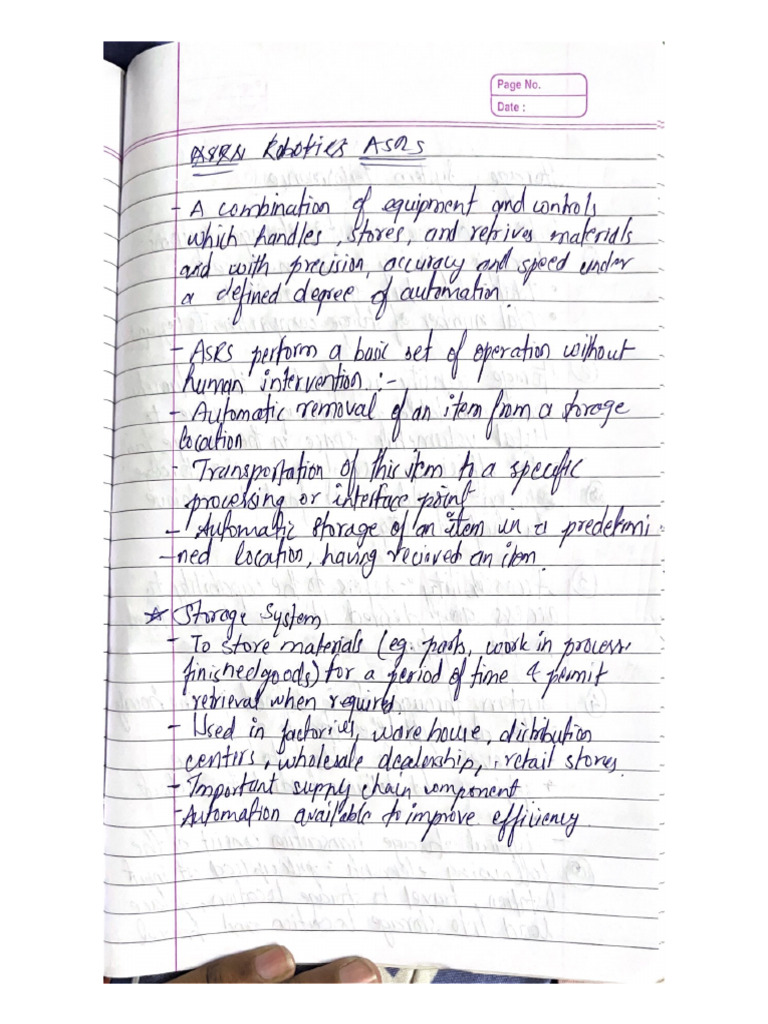 Page No.
Date :
Robotics ASRS
- A combination of equipment and controls
which handles, stores, and retrives materials
and with precision, accuracy and speed under
a defined degree of automation.
- ASRS perform a basic set of operation without
human intervention :-
- Automatic removal of an item from a storage
location
- Transportation of this item to a specific
processing or interface point
- Automatic storage of an item in a predetermi
-ned location, having recieved an item.
☆ Storage System
- To store materials (eg. parts, work in process
finished goods) for a period of time & permit
retrieval when required.
- Used in factories, warehouse, distribution
centers, wholesale dealership, retail stores.
- Important supply chain component
- Automation available to improve efficiency